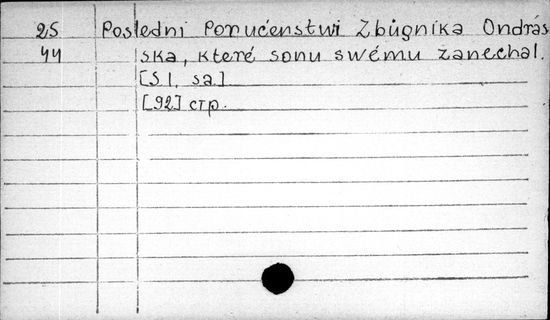 25 Posledni Poručenstwi Zbignika Ondrás
44 ska, které sonu swému žanechal.
[S l, sa]
[92] стр.